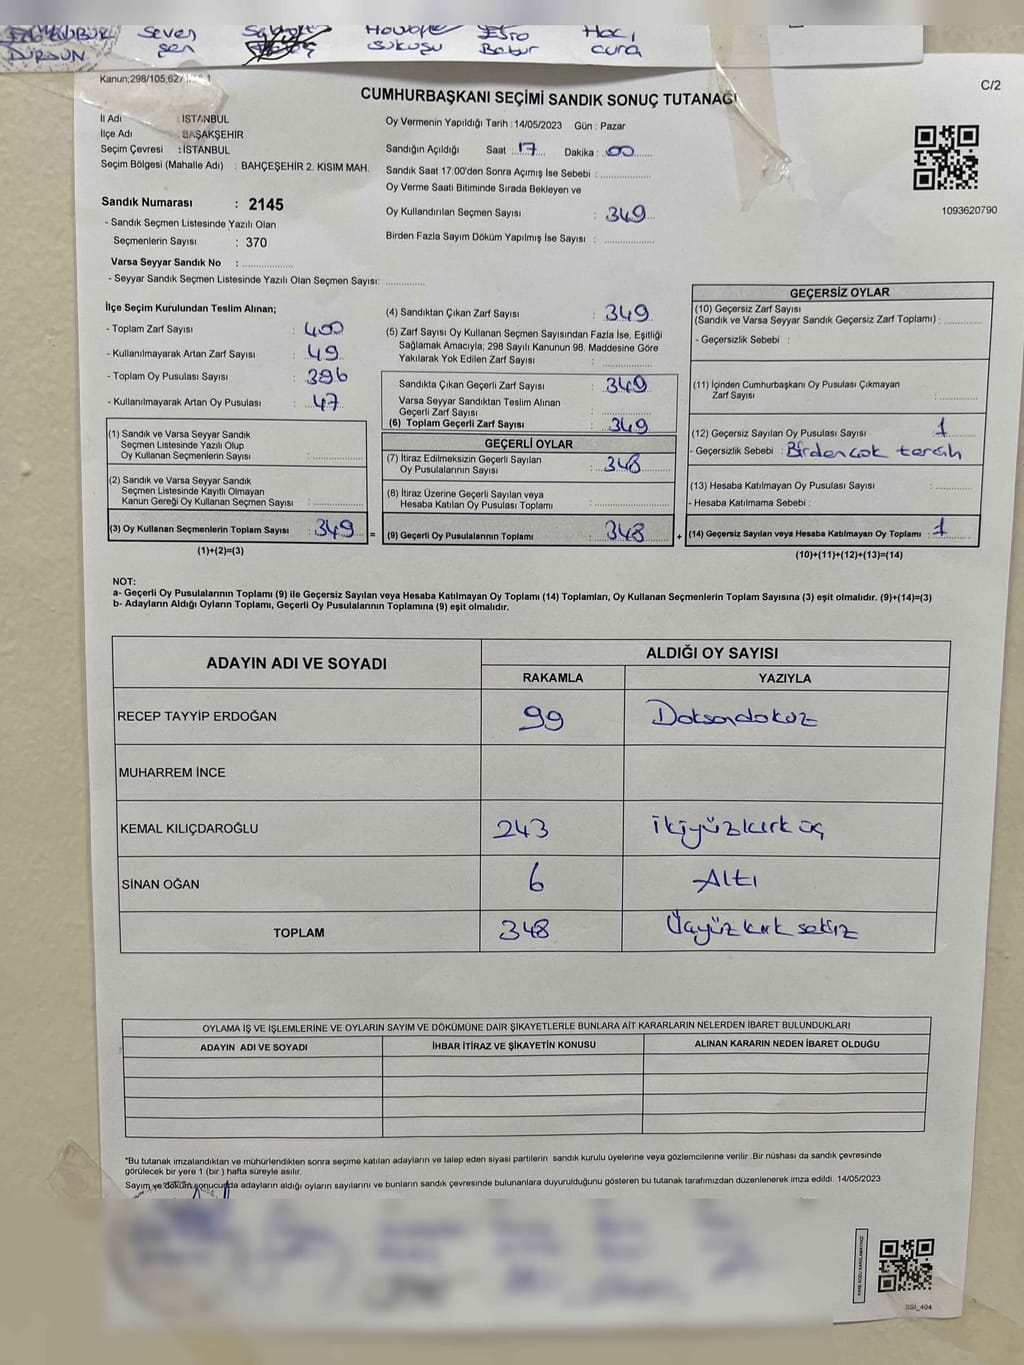 Seven
Esra
Hacı
DURSUN
Şen
Babur
cura
Kanun;298/105;627
C/2
CUMHURBAŞKANI SEÇİMİ SANDIK SONUÇ TUTANAĞI
İl Adı : İSTANBUL
Oy Vermenin Yapıldığı Tarih : 14/05/2023 Gün : Pazar
İlçe Adı : BAŞAKŞEHİR
Seçim Çevresi : İSTANBUL
Sandığın Açıldığı Saat : 17 Dakika : 00
Seçim Bölgesi (Mahalle Adı) : BAHÇEŞEHİR 2. KISIM MAH.
Sandık Saat 17:00'den Sonra Açımış İse Sebebi :
Oy Verme Saati Bitiminde Sırada Bekleyen ve
Oy Kullandırılan Seçmen Sayısı : 349
Birden Fazla Sayım Döküm Yapılmış İse Sayısı :
1093620790
Sandık Numarası : 2145
- Sandık Seçmen Listesinde Yazılı Olan
Seçmenlerin Sayısı : 370
Varsa Seyyar Sandık No :
- Seyyar Sandık Seçmen Listesinde Yazılı Olan Seçmen Sayısı:
İlçe Seçim Kurulundan Teslim Alınan;
- Toplam Zarf Sayısı : 400
- Kullanılmayarak Artan Zarf Sayısı : 49
- Toplam Oy Pusulası Sayısı : 396
- Kullanılmayarak Artan Oy Pusulası : 47
(1) Sandık ve Varsa Seyyar Sandık
Seçmen Listesinde Yazılı Olup
Oy Kullanan Seçmenlerin Sayısı :
(2) Sandık ve Varsa Seyyar Sandık
Seçmen Listesinde Kayıtlı Olmayan
Kanun Gereği Oy Kullanan Seçmen Sayısı :
(3) Oy Kullanan Seçmenlerin Toplam Sayısı : 349 =
(1)+(2)=(3)
(4) Sandıktan Çıkan Zarf Sayısı : 349
(5) Zarf Sayısı Oy Kullanan Seçmen Sayısından Fazla İse, Eşitliği
Sağlamak Amacıyla; 298 Sayılı Kanunun 98. Maddesine Göre
Yakılarak Yok Edilen Zarf Sayısı :
Sandıkta Çıkan Geçerli Zarf Sayısı : 349
Varsa Seyyar Sandıktan Teslim Alınan
Geçerli Zarf Sayısı :
(6) Toplam Geçerli Zarf Sayısı : 349
GEÇERLİ OYLAR
(7) İtiraz Edilmeksizin Geçerli Sayılan
Oy Pusulalarının Sayısı : 348
(8) İtiraz Üzerine Geçerli Sayılan veya
Hesaba Katılan Oy Pusulası Toplamı :
(9) Geçerli Oy Pusulalarının Toplamı : 348 +
GEÇERSİZ OYLAR
(10) Geçersiz Zarf Sayısı
(Sandık ve Varsa Seyyar Sandık Geçersiz Zarf Toplamı) :
- Geçersizlik Sebebi :
(11) İçinden Cumhurbaşkanı Oy Pusulası Çıkmayan
Zarf Sayısı :
(12) Geçersiz Sayılan Oy Pusulası Sayısı : 1
- Geçersizlik Sebebi : Birden çok tercih
(13) Hesaba Katılmayan Oy Pusulası Sayısı :
- Hesaba Katılmama Sebebi :
(14) Geçersiz Sayılan veya Hesaba Katılmayan Oy Toplamı : 1
(10)+(11)+(12)+(13)=(14)
NOT:
a- Geçerli Oy Pusulalarının Toplamı (9) ile Geçersiz Sayılan veya Hesaba Katılmayan Oy Toplamı (14) Toplamları, Oy Kullanan Seçmenlerin Toplam Sayısına (3) eşit olmalıdır. (9)+(14)=(3)
b- Adayların Aldığı Oyların Toplamı, Geçerli Oy Pusulalarının Toplamına (9) eşit olmalıdır.
ADAYIN ADI VE SOYADI
ALDIĞI OY SAYISI
RAKAMLA YAZIYLA
RECEP TAYYİP ERDOĞAN 99 Doksandokuz
MUHARREM İNCE
KEMAL KILIÇDAROĞLU 243 İkiyüzkırk üç
SİNAN OĞAN 6 Altı
TOPLAM 348 Üçyüz kırk sekiz
OYLAMA İŞ VE İŞLEMLERİNE VE OYLARIN SAYIM VE DÖKÜMÜNE DAİR ŞİKAYETLERLE BUNLARA AİT KARARLARIN NELERDEN İBARET BULUNDUKLARI
ADAYIN ADI VE SOYADI İHBAR İTİRAZ VE ŞİKAYETİN KONUSU ALINAN KARARIN NEDEN İBARET OLDUĞU
*Bu tutanak imzalandıktan ve mühürlendikten sonra seçime katılan adayların ve talep eden siyasi partilerin sandık kurulu üyelerine veya gözlemcilerine verilir .Bir nüshası da sandık çevresinde
görülecek bir yere 1 (bir ) hafta süreyle asılır.
Sayım ve döküm sonucunda adayların aldığı oyların sayılarını ve bunların sandık çevresinde bulunanlara duyurulduğunu gösteren bu tutanak tarafımızdan düzenlenerek imza edildi. 14/05/2023
SSİ_404